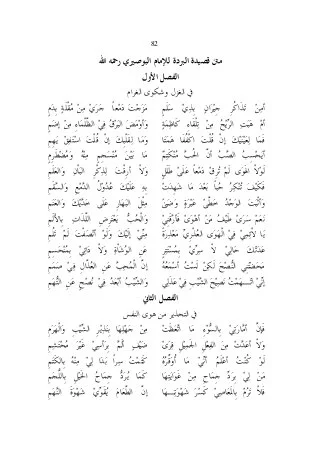 82
متن قصيدة البردة للإمام البوصيري رحمه الله
الفصل الأول
في الغزل وشكوى الغرام
أَمِنْ تَذَكُّرِ جِيرَانٍ بِذِي سَلَمِ مَزَجْتَ دَمْعًا جَرَىٰ مِنْ مُقْلَةٍ بِدَمِ
أَمْ هَبَّتِ الرِّيحُ مِنْ تِلْقَاءِ كَاظِمَةٍ وَأَوْمَضَ الْبَرْقُ فِي الظَّلْمَاءِ مِنْ إِضَمِ
فَمَا لِعَيْنَيْكَ إِنْ قُلْتَ اكْفُفَا هَمَتَا وَمَا لِقَلْبِكَ إِنْ قُلْتَ اسْتَفِقْ يَهِمِ
أَيَحْسَبُ الصَّبُّ أَنَّ الْحُبَّ مُنْكَتِمٌ مَا بَيْنَ مُنْسَجِمٍ مِنْهُ وَمُضْطَرِمِ
لَوْلَا الْهَوَىٰ لَمْ تُرِقْ دَمْعًا عَلَىٰ طَلَلٍ وَلَا أَرِقْتَ لِذِكْرِ الْبَانِ وَالْعَلَمِ
فَكَيْفَ تُنْكِرُ حُبًّا بَعْدَ مَا شَهِدَتْ بِهِ عَلَيْكَ عُدُولُ الدَّمْعِ وَالسَّقَمِ
وَأَثْبَتَ الْوَجْدُ خَطَّيْ عَبْرَةٍ وَضَنًى مِثْلَ الْبَهَارِ عَلَىٰ خَدَّيْكَ وَالْعَنَمِ
نَعَمْ سَرَىٰ طَيْفُ مَنْ أَهْوَىٰ فَأَرَّقَنِي وَالْحُبُّ يَعْتَرِضُ اللَّذَّاتِ بِالْأَلَمِ
يَا لَائِمِي فِي الْهَوَى الْعُذْرِيِّ مَعْذِرَةً مِنِّي إِلَيْكَ وَلَوْ أَنْصَفْتَ لَمْ تَلُمِ
عَدَتْكَ حَالِيَ لَا سِرِّي بِمُسْتَتِرٍ عَنِ الْوُشَاةِ وَلَا دَائِي بِمُنْحَسِمِ
مَحَضْتَنِي النُّصْحَ لٰكِنْ لَسْتُ أَسْمَعُهُ إِنَّ الْمُحِبَّ عَنِ الْعُذَّالِ فِي صَمَمِ
إِنِّي اتَّهَمْتُ نَصِيحَ الشَّيْبِ فِي عَذَلِي وَالشَّيْبُ أَبْعَدُ فِي نُصْحٍ عَنِ التُّهَمِ
الفصل الثاني
في التحذير من هوى النفس
فَإِنَّ أَمَّارَتِي بِالسُّوءِ مَا اتَّعَظَتْ مِنْ جَهْلِهَا بِنَذِيرِ الشَّيْبِ وَالْهَرَمِ
وَلَا أَعَدَّتْ مِنَ الْفِعْلِ الْجَمِيلِ قِرَىٰ ضَيْفٍ أَلَمَّ بِرَأْسِي غَيْرَ مُحْتَشِمِ
لَوْ كُنْتُ أَعْلَمُ أَنِّي مَا أُوَقِّرُهُ كَتَمْتُ سِرًّا بَدَا لِي مِنْهُ بِالْكَتَمِ
مَنْ لِي بِرَدِّ جِمَاحٍ مِنْ غَوَايَتِهَا كَمَا يُرَدُّ جِمَاحُ الْخَيْلِ بِاللُّجُمِ
فَلَا تَرُمْ بِالْمَعَاصِي كَسْرَ شَهْوَتِهَا إِنَّ الطَّعَامَ يُقَوِّي شَهْوَةَ النَّهِمِ